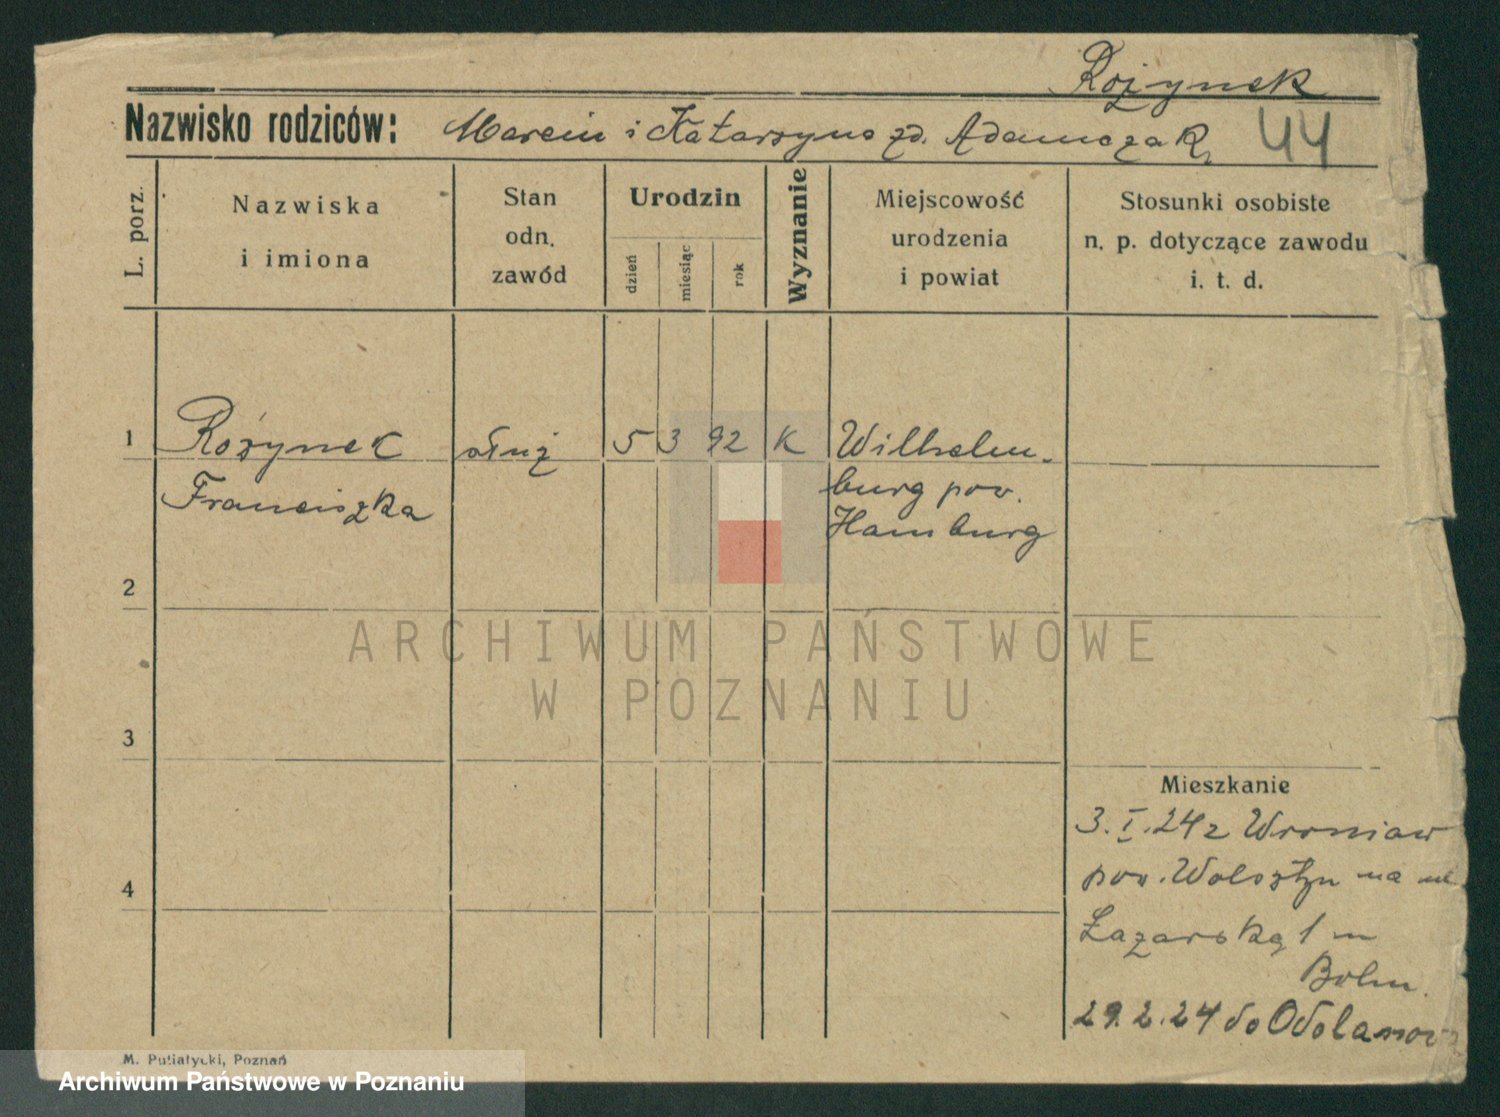 Rożynek
Nazwisko rodziców: Marcin i Katarzyna zd. Adamczak 44
L. porz.
Nazwiska
i imiona
Stan
odn.
zawód
Urodzin
dzień
miesiąc
rok
Wyznanie
Miejscowość
urodzenia
i powiat
Stosunki osobiste
n. p. dotyczące zawodu
i. t. d.
1 Rożynek służ 5 3 92 K Wilhelm-
Franciszka burg pow.
Hamburg
2
ARCHIWUM PAŃSTWOWE
W POZNANIU
3
Mieszkanie
3.I.24 z Wroniaw
4 pow. Wolsztyn na ul
Łazarską 1 m
29.2.24 do Odolanow
M. Putiatycki, Poznań
Archiwum Państwowe w Poznaniu